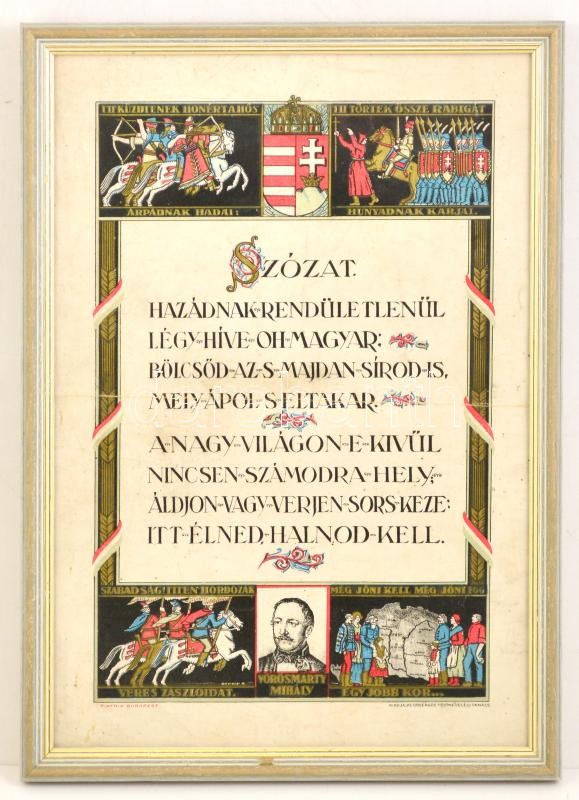 ITT KÜZDTENEK HONÉRT A HŐS
ÁRPÁDNAK HADAI:
ITT TÖRTEK ÖSSZE RABIGÁT
HUNYADNAK KARJAI.
SZÓZAT.
HAZÁDNAK RENDÜLETLENŰL
LÉGY HÍVE OH MAGYAR:
BÖLCSŐD AZ S MAJDAN SÍROD IS,
MELY ÁPOL S ELTAKAR.
A NAGY VILÁGON E KIVŰL
NINCSEN SZÁMODRA HELY;
ÁLDJON VAGY VERJEN SORS KEZE:
ITT ÉLNED, HALNOD KELL.
SZABADSÁG! ITTEN HORDOZÁK
VÉRES ZÁSZLÓIDAT.
VÖRÖSMARTY
MIHÁLY
MÉG JŐNI KELL MÉG JŐNI FOG
EGY JOBB KOR
PIATNIK BUDAPEST
KIADJA AZ ORSZÁGOS NÉPMŰVELÉSI TANÁCS